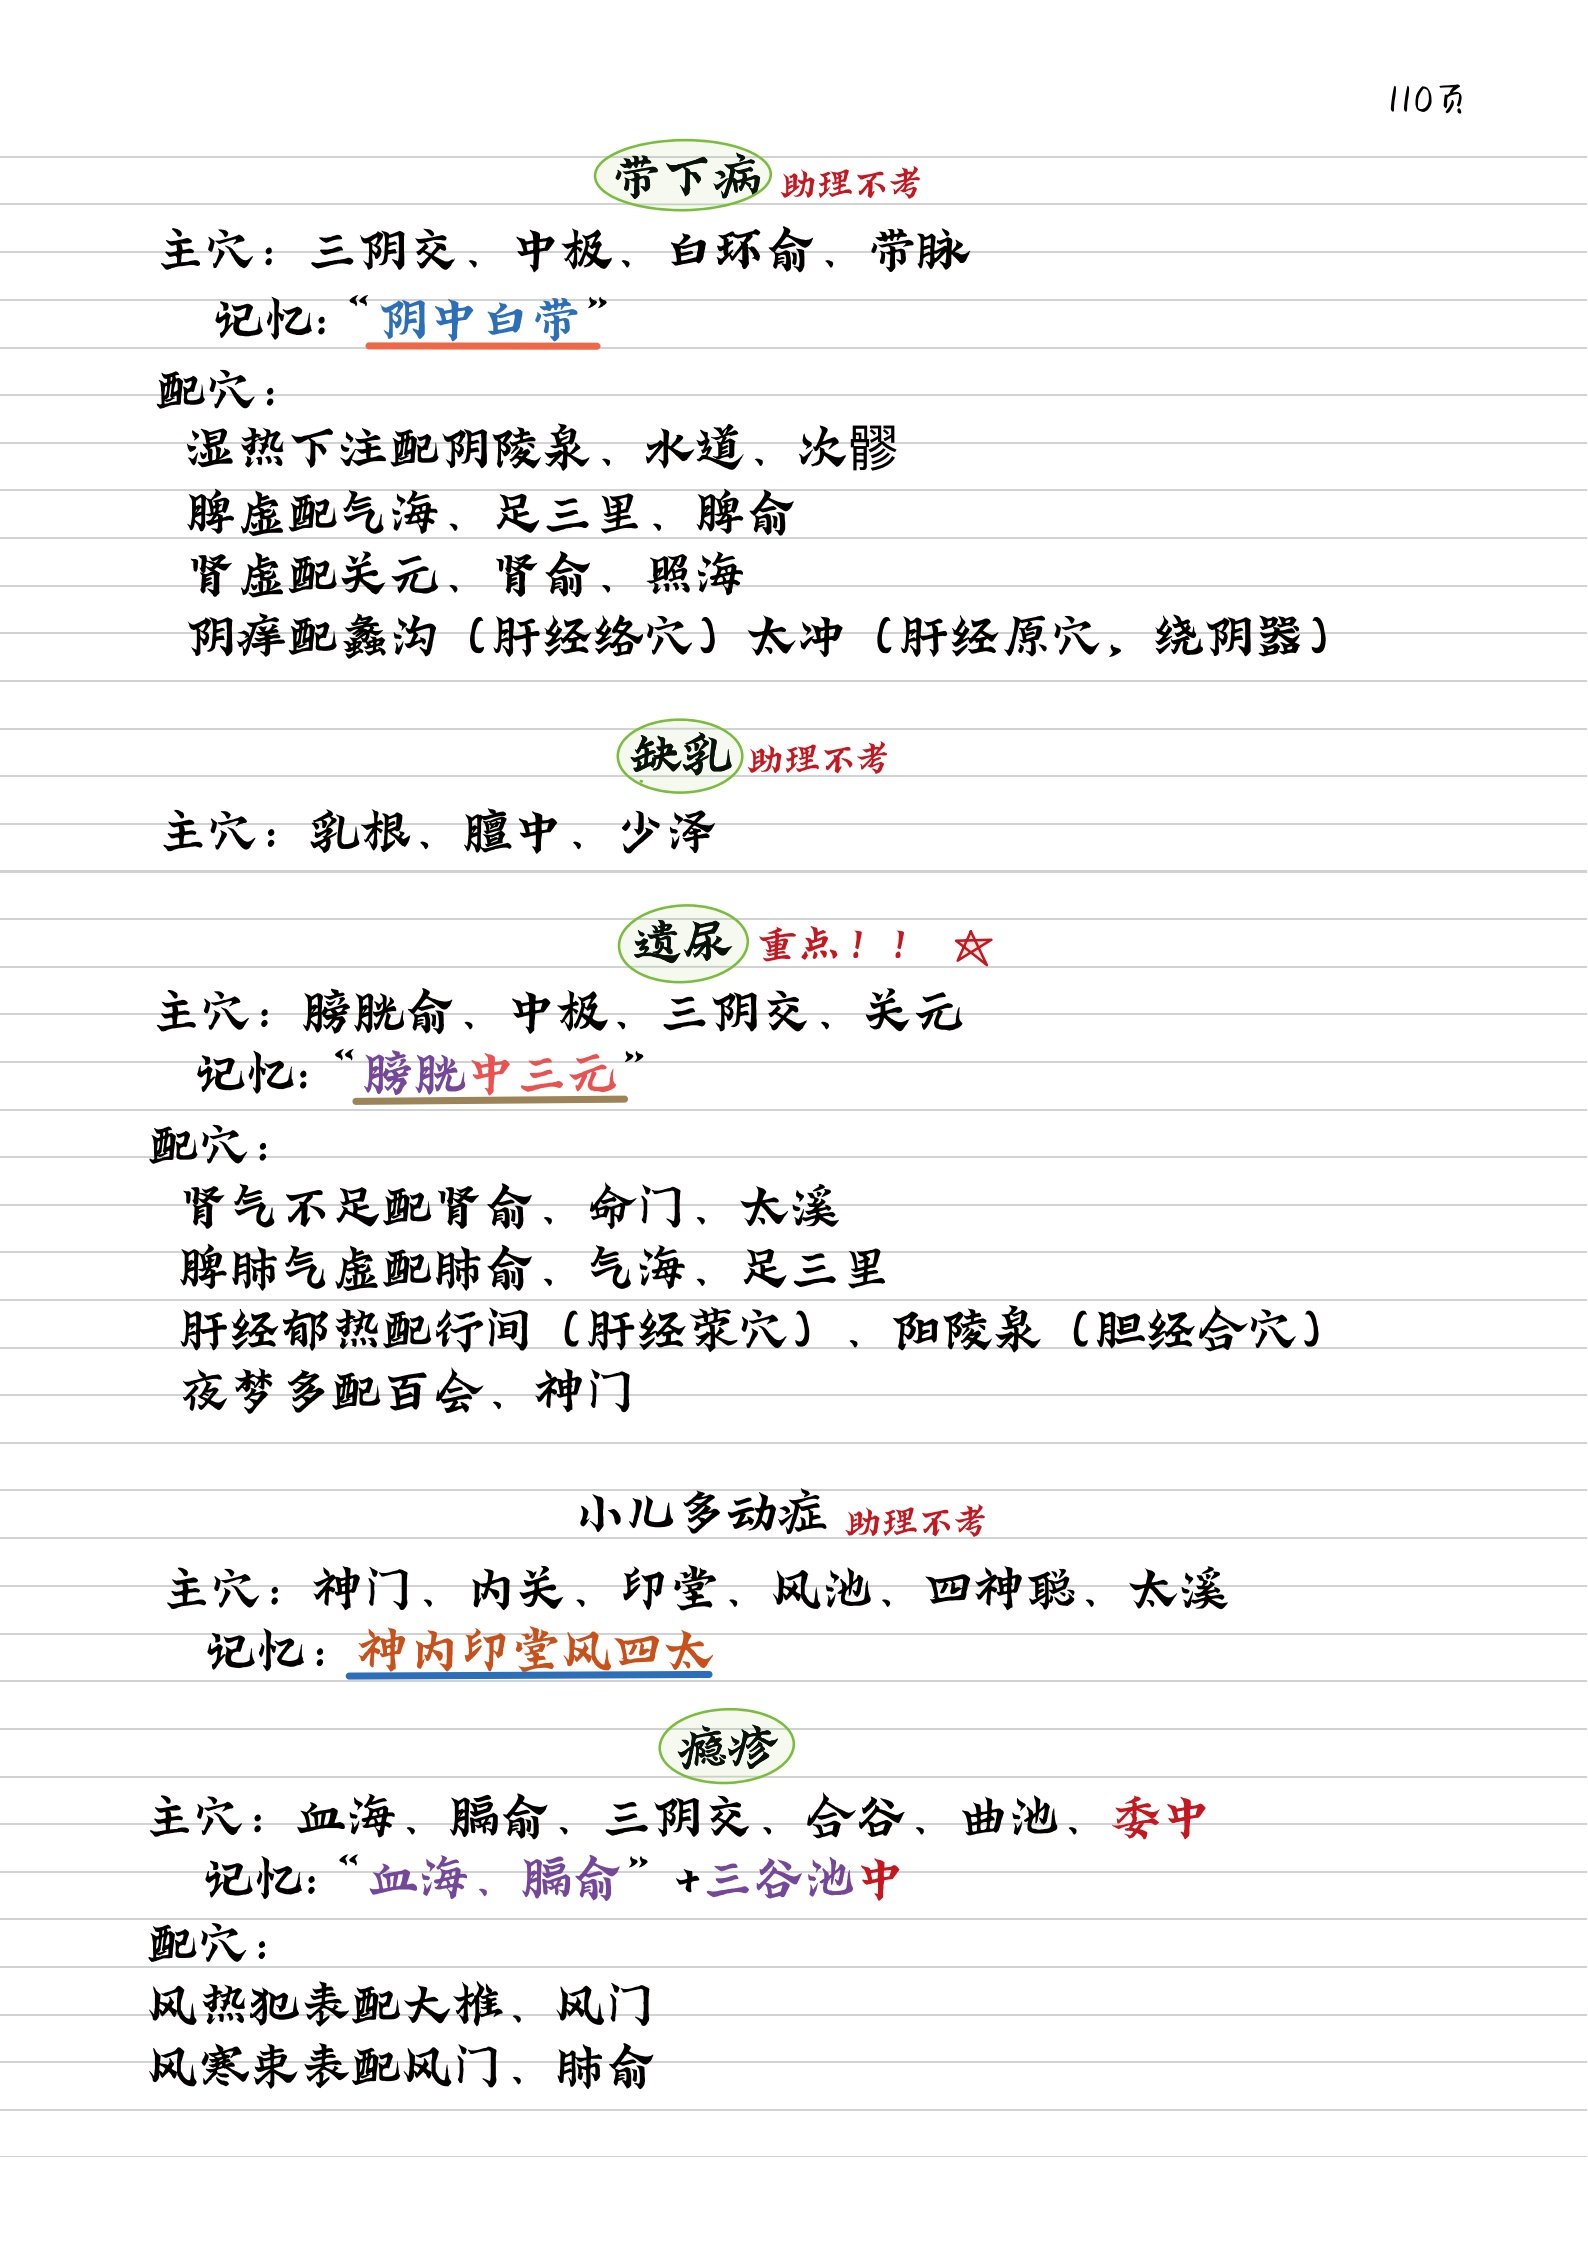 110页
带下病 助理不考
主穴：三阴交、中极、白环俞、带脉
记忆：“阴中白带”
配穴：
湿热下注配阴陵泉、水道、次髎
脾虚配气海、足三里、脾俞
肾虚配关元、肾俞、照海
阴痒配蠡沟（肝经络穴）太冲（肝经原穴，绕阴器）
缺乳 助理不考
主穴：乳根、膻中、少泽
遗尿 重点！！ ☆
主穴：膀胱俞、中极、三阴交、关元
记忆：“膀胱中三元”
配穴：
肾气不足配肾俞、命门、太溪
脾肺气虚配肺俞、气海、足三里
肝经郁热配行间（肝经荥穴）、阳陵泉（胆经合穴）
夜梦多配百会、神门
小儿多动症 助理不考
主穴：神门、内关、印堂、风池、四神聪、太溪
记忆：神内印堂风四太
瘾疹
主穴：血海、膈俞、三阴交、合谷、曲池、委中
记忆：“血海、膈俞”+三谷池中
配穴：
风热犯表配大椎、风门
风寒束表配风门、肺俞